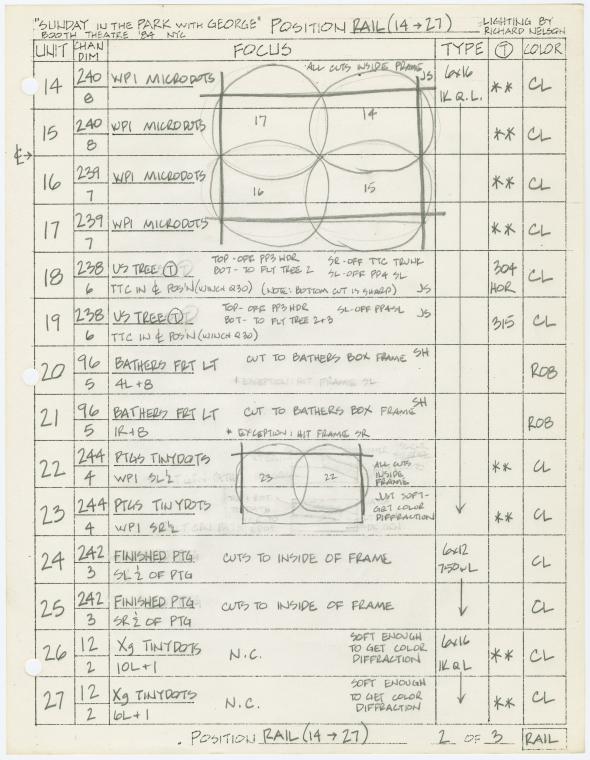 "SUNDAY IN THE PARK WITH GEORGE" POSITION RAIL (14→27) LIGHTING BY
BOOTH THEATRE '84 NYC RICHARD NELSON
UNIT CHAN DIM FOCUS TYPE Ⓣ COLOR
ALL CUTS INSIDE FRAME
14 240 WPI MICRODOTS JS 6x16 ** CL
8 1K Q.L.
17 14
15 240 WPI MICRODOTS ** CL
8
℄→
16 239 WPI MICRODOTS 16 15 ** CL
7
17 239 WPI MICRODOTS ** CL
7
18 238 US TREE Ⓣ TOP-OFF PP3 HDR SR-OFF TTC TRUNK 304 CL
BOT- TO FLY TREE 2 SL-OFF PP4 SL HOR
6 TTC IN ℄ POS'N (WINCH Q30) (NOTE: BOTTOM CUT IS SHARP) JS
19 238 US TREE Ⓣ TOP-OFF PP3 HDR SL-OFF PP4SL JS 315 CL
BOT- TO FLY TREE 2+3
6 TTC IN ℄ POS'N (WINCH Q30)
20 96 BATHERS FRT LT CUT TO BATHERS BOX FRAME SH R08
5 4L+8 * EXCEPTION: HIT FRAME SL
21 96 BATHERS FRT LT CUT TO BATHERS BOX FRAME SH R08
5 1R+8 * EXCEPTION: HIT FRAME SR
22 244 PTGS TINYDOTS 23 22 ALL CUTS ** CL
4 WPI SL½ INSIDE
FRAME
23 244 PTGS TINYDOTS JUST SOFT- ** CL
4 WPI SR½ GET COLOR
DIFFRACTION
24 242 FINISHED PTG CUTS TO INSIDE OF FRAME 6x12 CL
3 SL ½ OF PTG 750WL
25 242 FINISHED PTG CUTS TO INSIDE OF FRAME CL
3 SR ½ OF PTG
26 12 Xg TINYDOTS N.C. SOFT ENOUGH 6x16 ** CL
2 10L+1 TO GET COLOR 1K QL
DIFFRACTION
27 12 Xg TINYDOTS N.C. SOFT ENOUGH ** CL
2 6L+1 TO GET COLOR
DIFFRACTION
. POSITION RAIL (14→27) 2 OF 3 RAIL